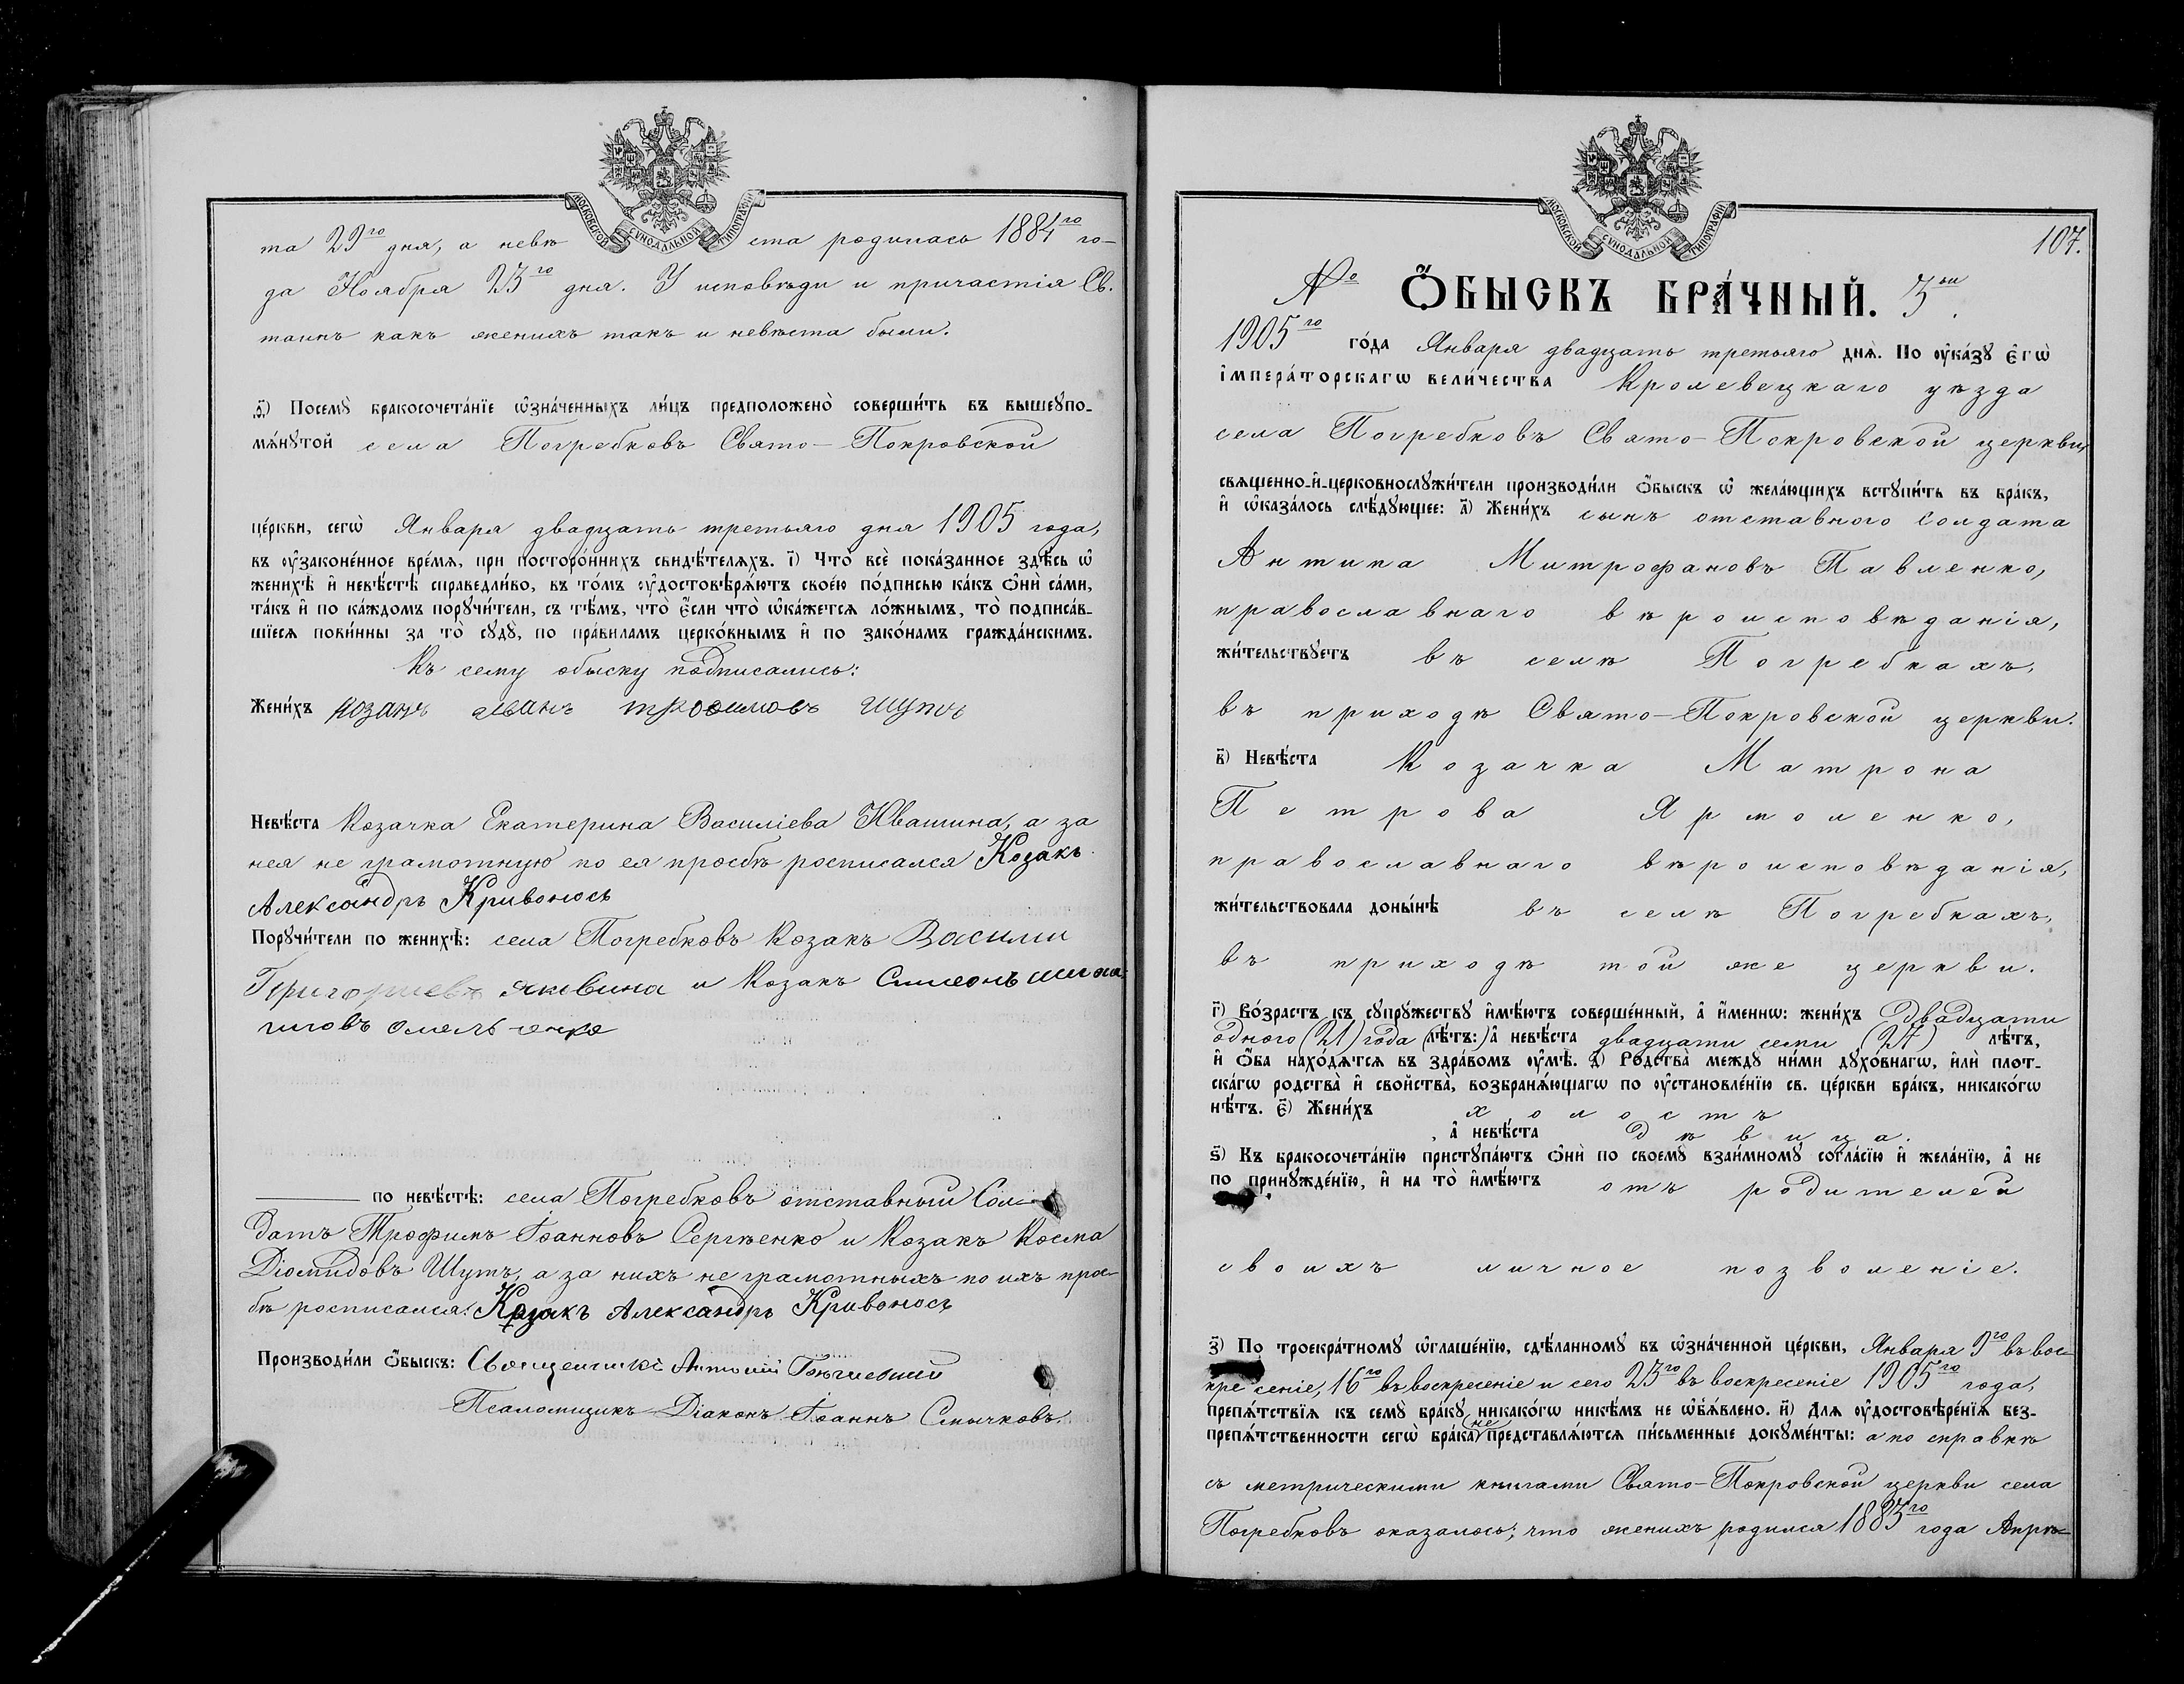 МОСКОВСКОЙ СѴНОДАЛЬНОЙ ТИПОГРАФІИ
та 29го дня, а невѣ ста родилась 1884го го-
да Ноября 23го дня. У исповѣди и причастія Св.
таинъ какъ женихъ такъ и невѣста были.
д҃і) Посемꙋ̀ бракосочета́нїе ѡ҆зна́ченныхъ ли́цъ предположено̀ соверши́ть въ вышеꙋпо-
мѧ́нꙋтой села Погребковъ Свято-Покровской
це́ркви, сегѡ̀ Января двадцать третьяго дня 1905 года,
въ ᲂу҆законе́нное вре́мѧ, при посторо́ннихъ свидѣ́телѧхъ. і҃) Что̀ всѐ пока́занное здѣ́сь ѡ҆
женихѣ̀ и҆ невѣ́стѣ справедли́во, въ то́мъ ᲂу҆достовѣрѧ́ютъ свое́ю по́дписью ка́къ ѻ҆нѝ са́ми,
та́къ и҆ по ка́ждомъ порꙋчи́тели, съ тѣ́мъ, что̀ є҆́сли что̀ ѡ҆ка́жетсѧ ло́жнымъ, то̀ подписа́в-
шїесѧ пови́нны за то̀ сꙋдꙋ̀, по пра́виламъ церко́внымъ и҆ по зако́намъ гражда́нскимъ.
Къ сему обыску подписались:
Жени́хъ козакъ иванъ трофимовъ шутъ
Невѣ́ста Козачка Екатерина Василіева Ивашина, а за
нея не грамотную по ея просьбѣ росписался Козакъ
Александръ Кривоносъ
Порꙋчи́тели по женихѣ̀: села Погребковъ Козакъ Васили
Григориевъ и Козакъ Симеонъ
омельченко
по невѣ́стѣ: села Погребковъ отставный Сол-
датъ Трофимъ Іоанновъ Сергѣенко и Козакъ Косма
Діомидовъ Шутъ, а за нихъ не грамотныхъ по ихъ прось-
бѣ росписался: Козакъ Александръ Кривоносъ
Производи́ли ѻ҆́быскъ: Священникъ Антоній
Псаломщикъ-Діаконъ Іоаннъ Смычковъ.
МОСКОВСКОЙ СѴНОДАЛЬНОЙ ТИПОГРАФІИ
107.
№ Ѻ҆́БЫСКЪ БРА́ЧНЫЙ. 3ій.
1905го го́да Января двадцать третьяго днѧ̀. По ᲂу҆ка́зꙋ є҆гѡ̀
і҆мпера́торскагѡ вели́чества Кролевецкаго уѣзда
села Погребковъ Свято-Покровской церкви,
свѧщенно-и҆-церковнослꙋжи́тели производи́ли ѻ҆́быскъ ѡ҆ жела́ющихъ встꙋпи́ть въ бра́къ,
и҆ ѡ҆каза́лось слѣ́дꙋющее: а҃) Жени́хъ сынъ отставного солдата
Антипа Митрофановъ Павленко,
православнаго вѣроисповѣданія,
жи́тельствꙋетъ въ селѣ Погребкахъ,
въ приходѣ Свято-Покровской церкви.
в҃) Невѣ́ста Козачка Матрона
Петрова Ярмоленко,
православнаго вѣроисповѣданія,
жи́тельствовала доны́нѣ въ селѣ Погребкахъ,
въ приходѣ той же церкви.
г҃) Во́зрастъ къ сꙋпрꙋ́жествꙋ и҆мѣ́ютъ соверше́нный, а҆ и҆́меннѡ: жени́хъ двадцати
одного (21) года (лѣ́тъ:) а҆ невѣ́ста двадцати семи (27) лѣ́тъ,
и҆ ѻ҆́ба нахо́дѧтсѧ въ здра́вомъ ᲂу҆мѣ̀. д҃) Родства̀ междꙋ̀ ни́ми дꙋхо́внагѡ, и҆лѝ плот-
ска́гѡ родства̀ и҆ свойства̀, возбранѧ́ющагѡ по ᲂу҆становле́нїю св. це́ркви бра́къ, никако́гѡ
нѣ́тъ. є҃) Жени́хъ холостъ
, а҆ невѣ́ста дѣвица.
ѕ҃) Къ бракосочета́нїю пристꙋпа́ютъ ѻ҆нѝ по своемꙋ̀ взаи́мномꙋ согла́сїю и҆ жела́нїю, а҆ не
по принꙋжде́нїю, и҆ на то̀ и҆мѣ́ютъ отъ родителей
своихъ личное позволеніе.
з҃) По троекра́тномꙋ ѡ҆глаше́нїю, сдѣ́ланномꙋ въ ѡ҆зна́ченной це́ркви, Января 9го въ вос-
кресеніе, 16го въ воскресеніе и сего 23го въ воскресеніе 1905го года,
препѧ́тствїѧ къ семꙋ̀ бра́кꙋ никако́гѡ никѣ́мъ не ѡ҆б̾ѧ́влено. и҃) Длѧ ᲂу҆достовѣре́нїѧ без-
препѧ́тственности сегѡ̀ бра́ка не представлѧ́ютсѧ пи́сьменные докꙋме́нты: а по справкѣ
съ метрическими книгами Свято-Покровской церкви села
Погребковъ оказалось, что женихъ родился 1883го года Апрѣ-